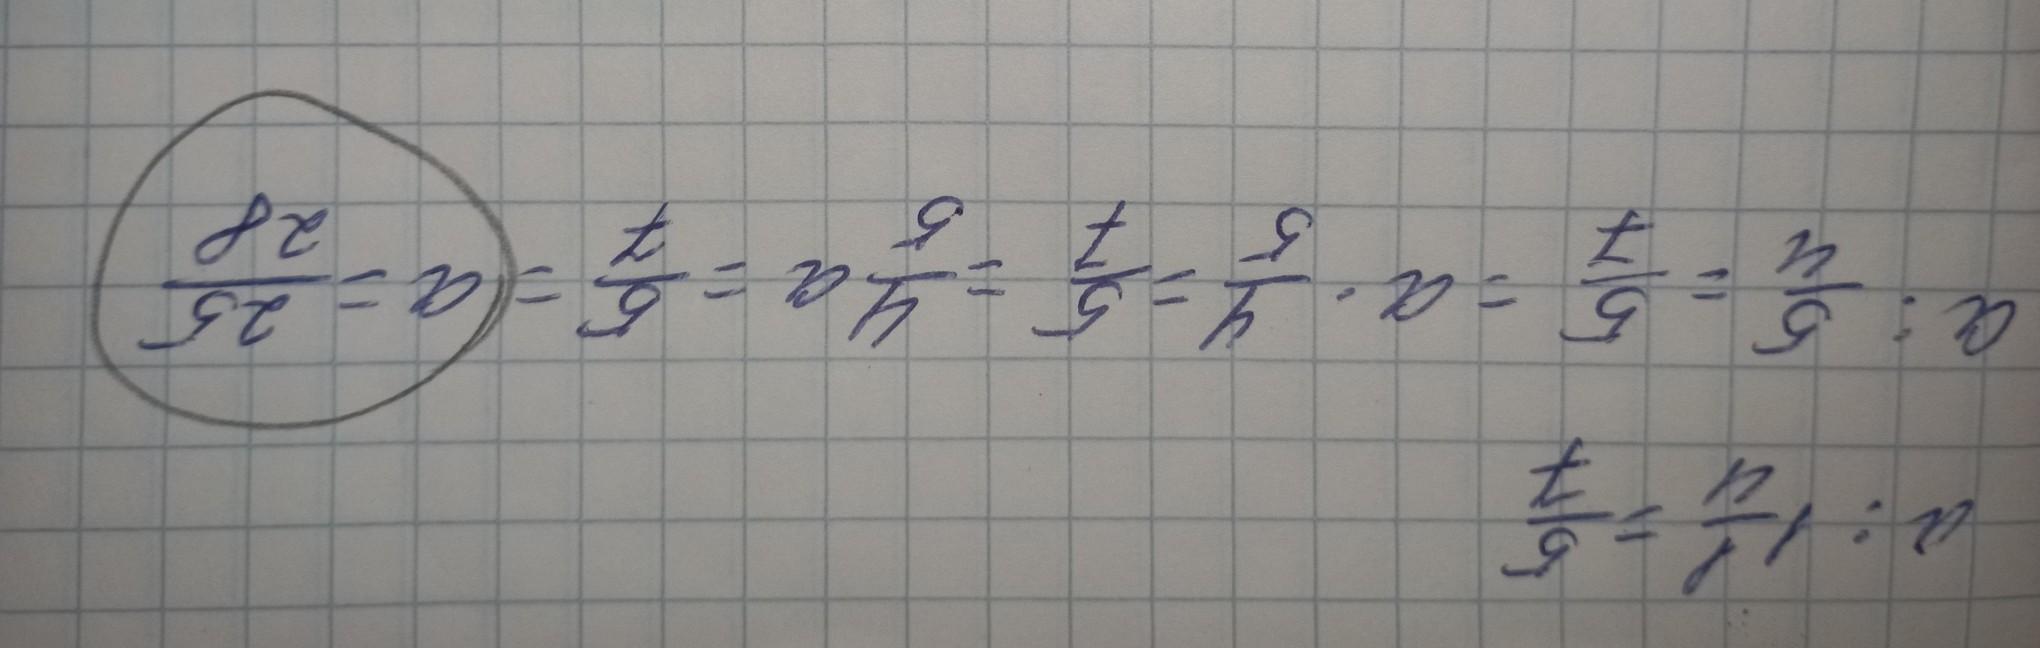 a : 1 1/4 = 5/7
a : 5/4 = 5/7 = a · 4/5 = 5/7 = 4/5 a = 5/7 = a = 25/28